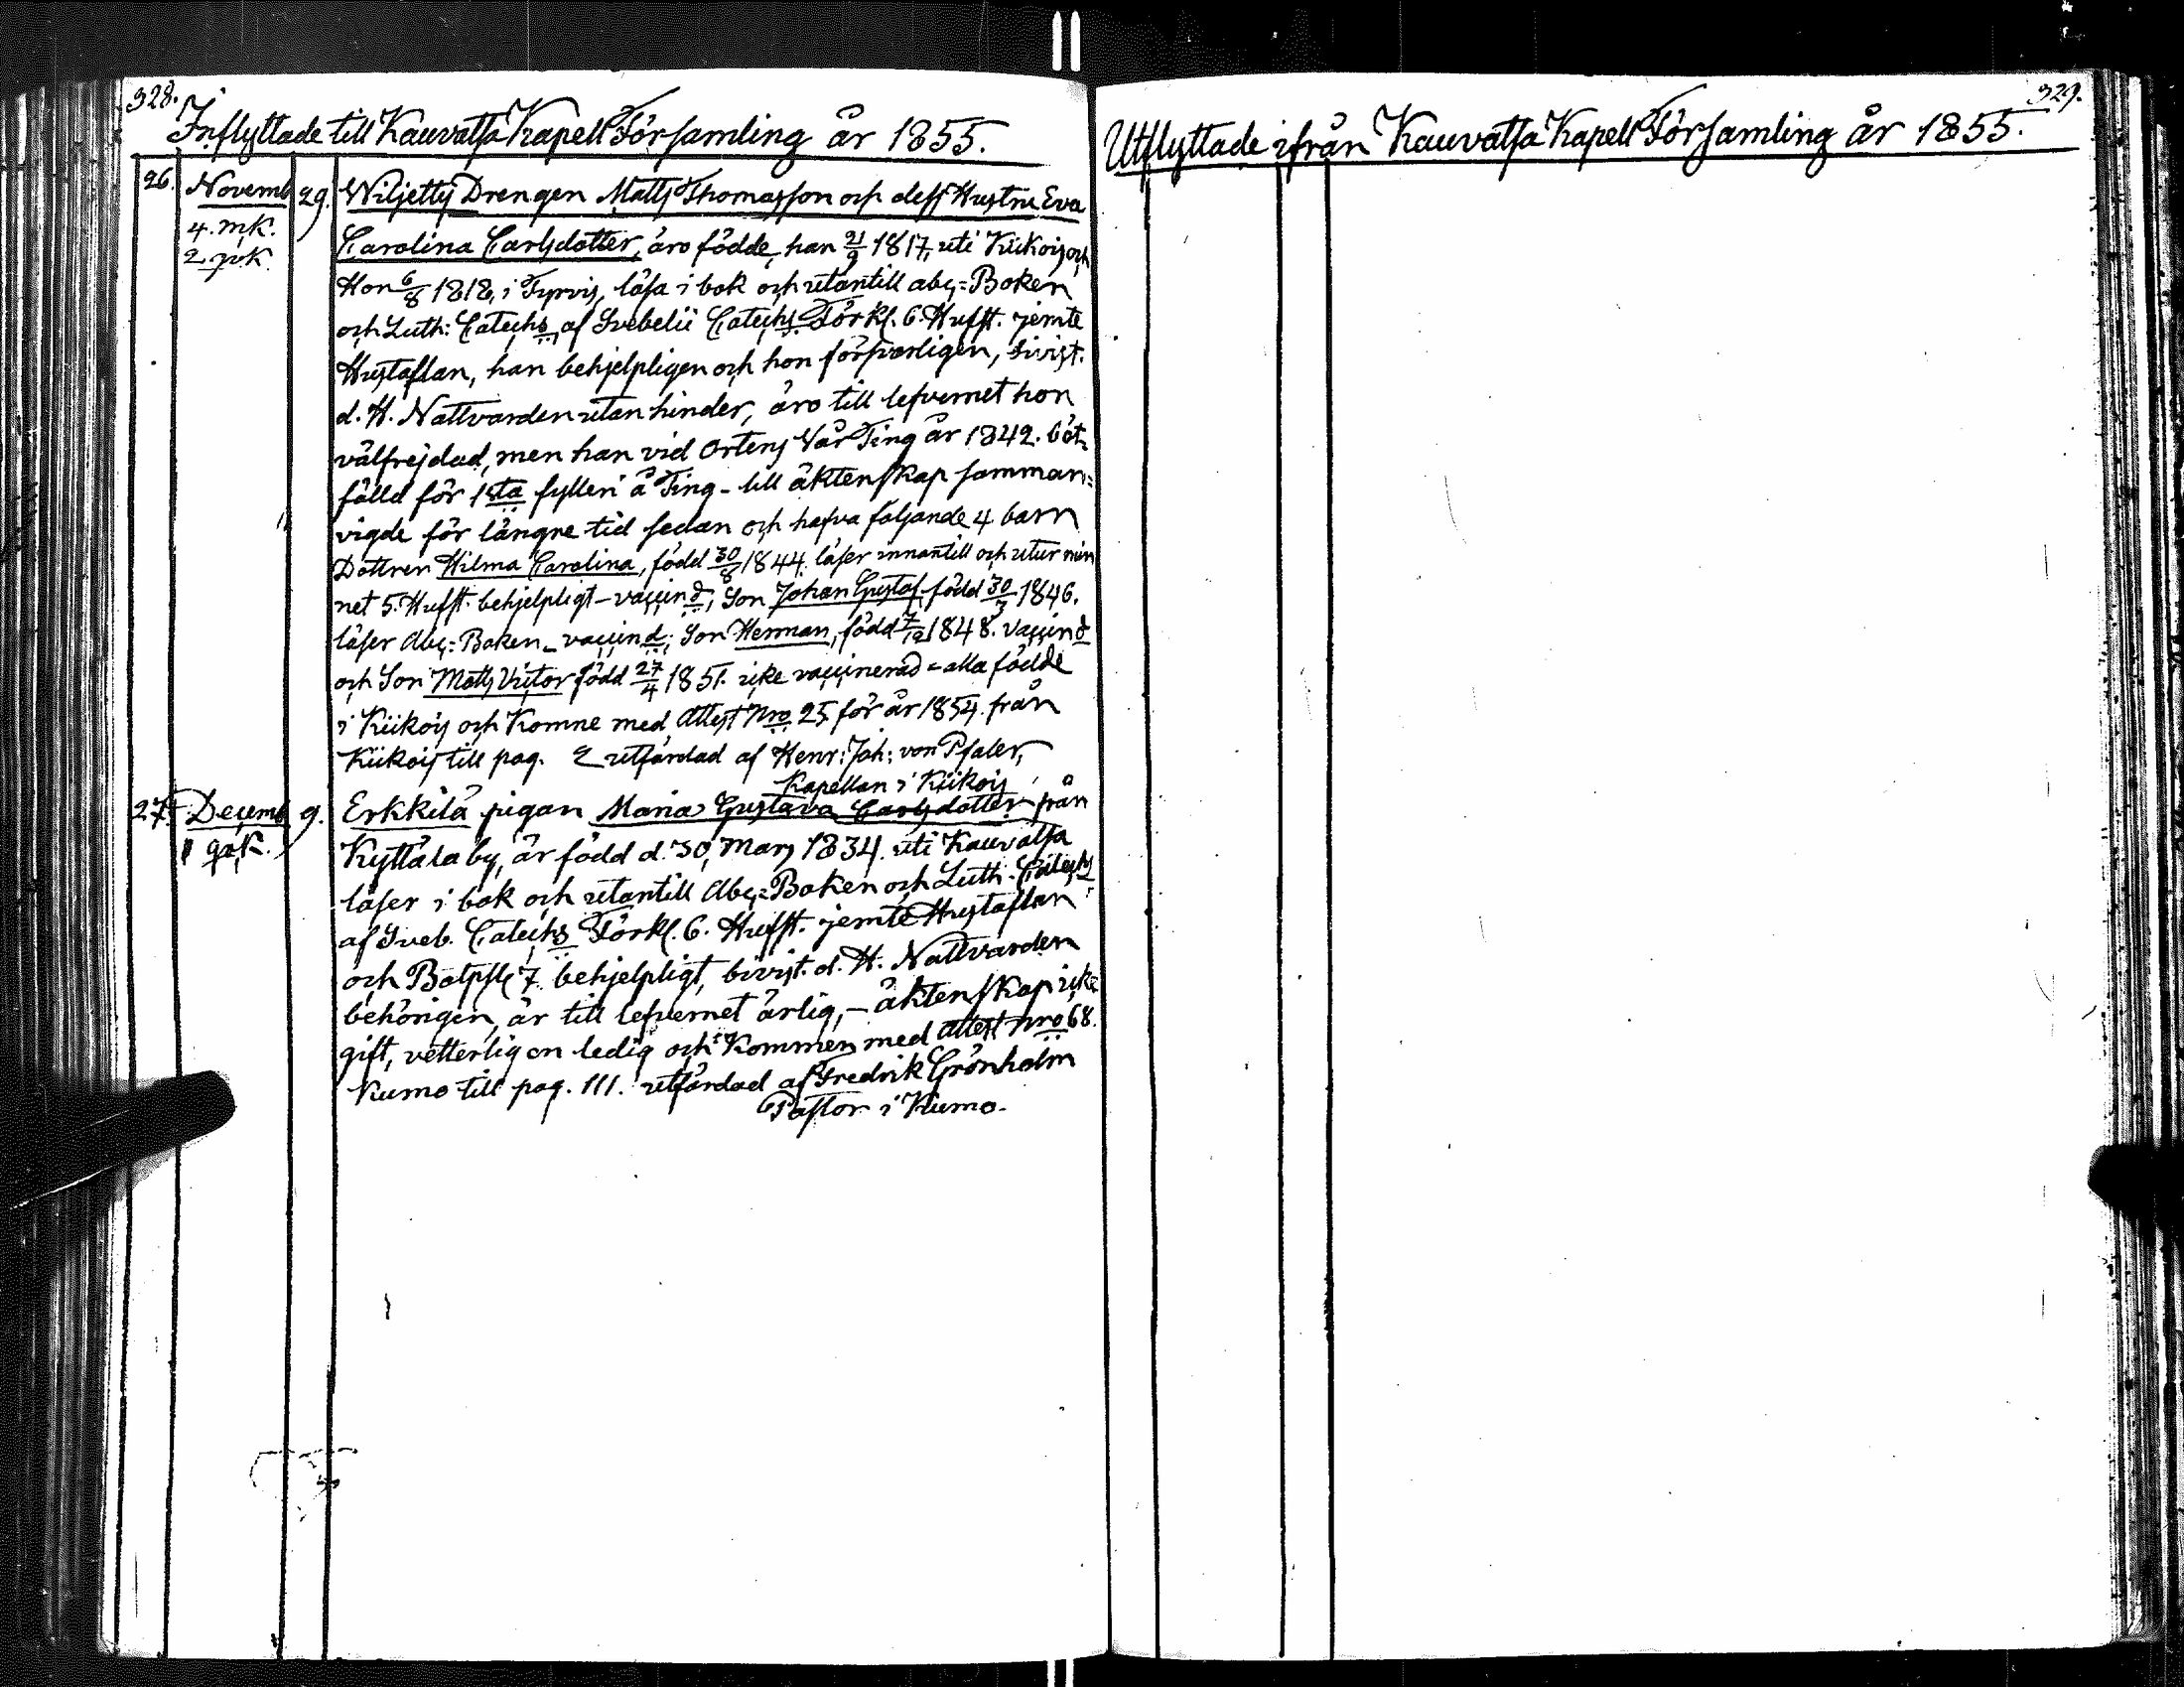 328.
Inflyttade till Kauvatsa Kapell Församling år 1855.
26. Novemb 29. Wiljetty Drengen Matts Thomasson och dess Hustru Eva
4. mk.
2 qvk.
Carolina Carlsdotter, äro födde, han 21/9 1817, uti Kiikois och
Hon 6/8 1818, i Tyrvis, läsa i bok och utantill abc=Boken
och Luth: Cateches af Svebelii Cateches Förkl. 6. Hufst. jemte
Hustaflan, han behjelpligen och hon försvarligen, bivist.
d. H. Nattvarden utan hinder, äro till lefvernet hon
välfrejdad, men han vid Ortens Vår Ting år 1842. böt=
fälld för 1sta fylleri å Ting - till äktenskap samman=
vigde för längre tid sedan och hafva följande 4 barn
Dottren Hilma Carolina, född 30/8 1844. läser innantill och utur min
net 5. Hufst. behjelpligt - vaccind, Son Johan Gustaf född 30/3 1846.
läser Abc=Boken - vaccind; Son Herman, född 7/12 1848. vaccind
och Son Matts Victor född 27/4 1851. icke vaccinerad = alla födde
i Kiikois och komne med Attest Nro 25 för år 1854. från
Kiikois till pag. 2 utfärdad af Henr: Joh: von Pfaler,
Kapellan i Kiikois
27. Decemb 9. Erkkilä pigan Maria Gustava Carlsdotter från
1 qvk.
Kyttälä by, är född d. 30 Mars 1834. uti Kauvatsa
läser i bok och utantill Abc=Boken och Luth. Cateches
af Sveb. Cateches Förkl. 6. Hufst. jemte Hustaflan
och Botpsl 7 behjelpligt, bivist. d. H. Nattvarden
behörigen, är till lefvernet ärlig, - äktenskap icke
gift, vetterligen ledig och kommen med Attest Nro 68.
Kumo till pag. 111. utfärdad af Fredrik Grönholm
Pastor i Kumo.
329.
Utflyttade ifrån Kauvatsa Kapell Församling år 1855.